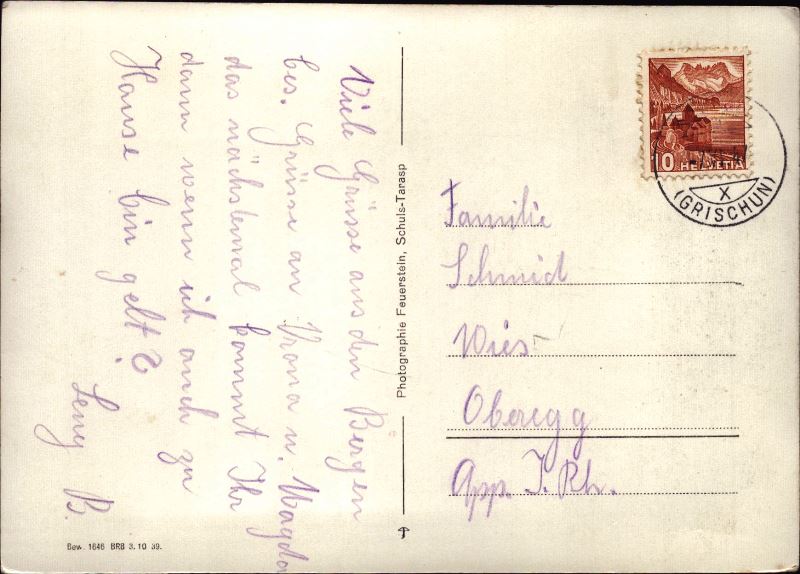 Viele Grüsse aus den Bergen
bes. Grüsse an Vrona u. Magda
das nächstemal kommt Ihr
dann wenn ich auch zu
Hause bin gelt?
Leny B.
Photographie Feuerstein, Schuls-Tarasp
Bew. 1646 BRB 3. 10 39.
10 HELVETIA
X
(GRISCHUN)
Familie
Schmid
Wies
Oberegg
App. I. Rh.